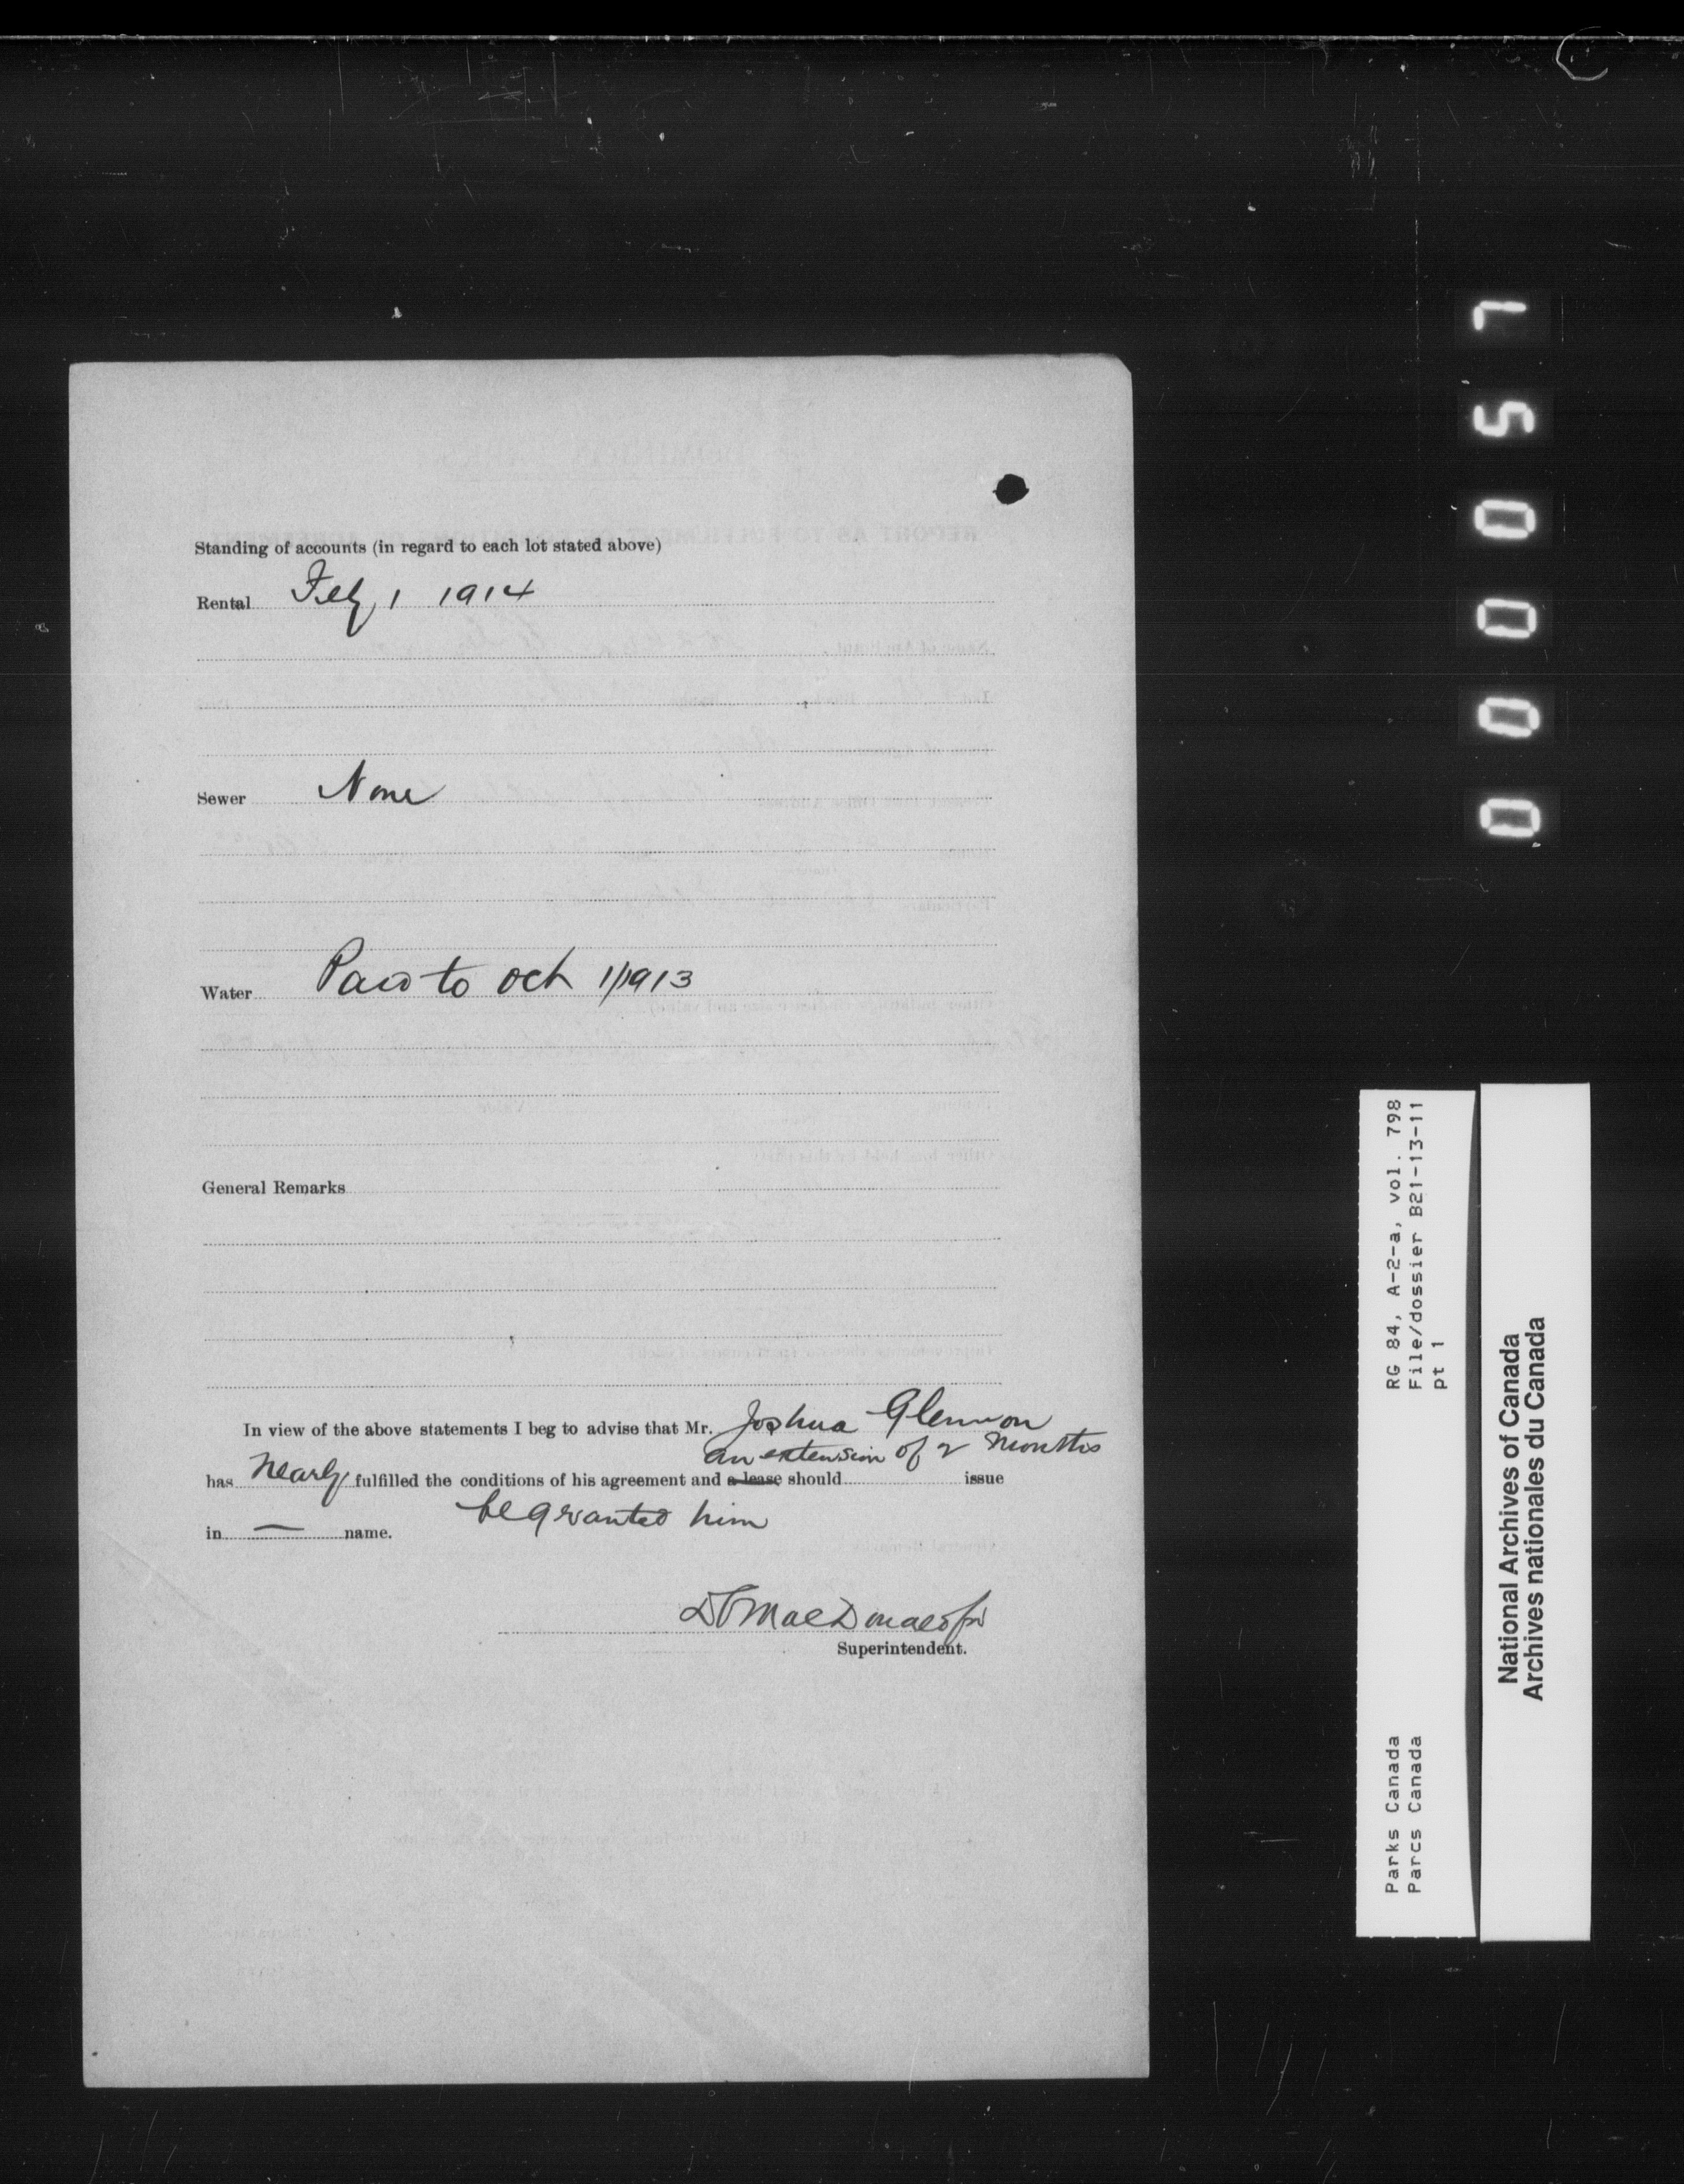 Standing of accounts (in regard to each lot stated above)
Rental Feby 1 1914
Sewer None
Water Paid to Oct 1/1913
General Remarks
In view of the above statements I beg to advise that Mr. Joshua Glennon
an extension of 2 Months
has Nearly fulfilled the conditions of his agreement and a lease should issue
be granted him
in — name.
MacDonald
Superintendent.
000057
RG 84, A-2-a, vol. 798
File/dossier B21-13-11
pt 1
Parks Canada
Parcs Canada
National Archives of Canada
Archives nationales du Canada